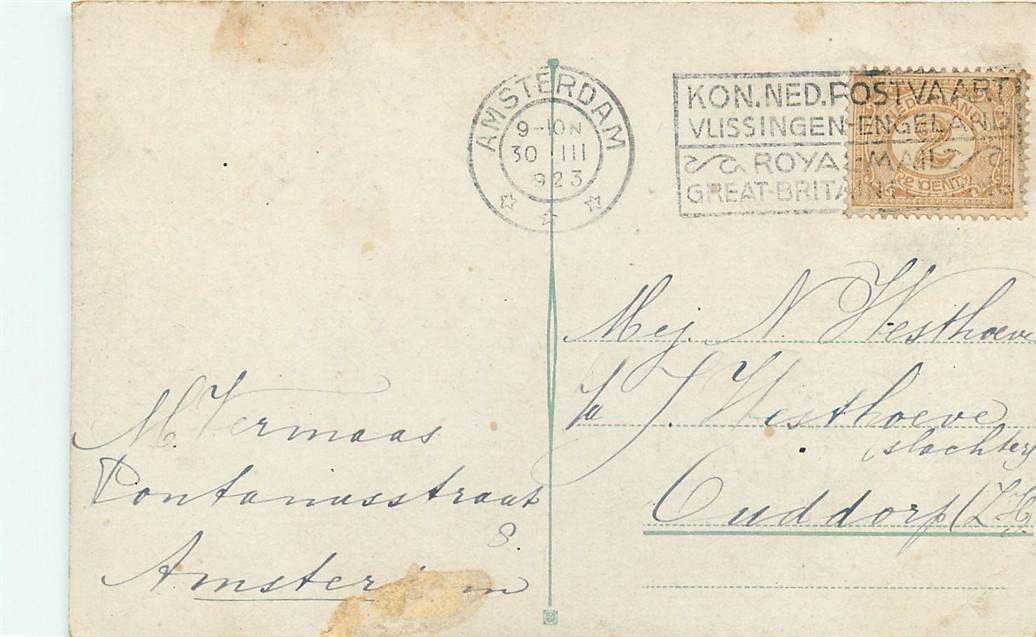 AMSTERDAM
9-10 N
30 III
923
KON. NED. POSTVAART
VLISSINGEN-ENGELAND
ROYAL MAIL
GREAT-BRITAIN
NEDERLAND
2½
CENT
Mej. N. Westhoeve
p/a J. Westhoeve
(slachter)
Ouddorp (Z.H.
M. Vermaas
Pontanusstraat
8.
Amster m